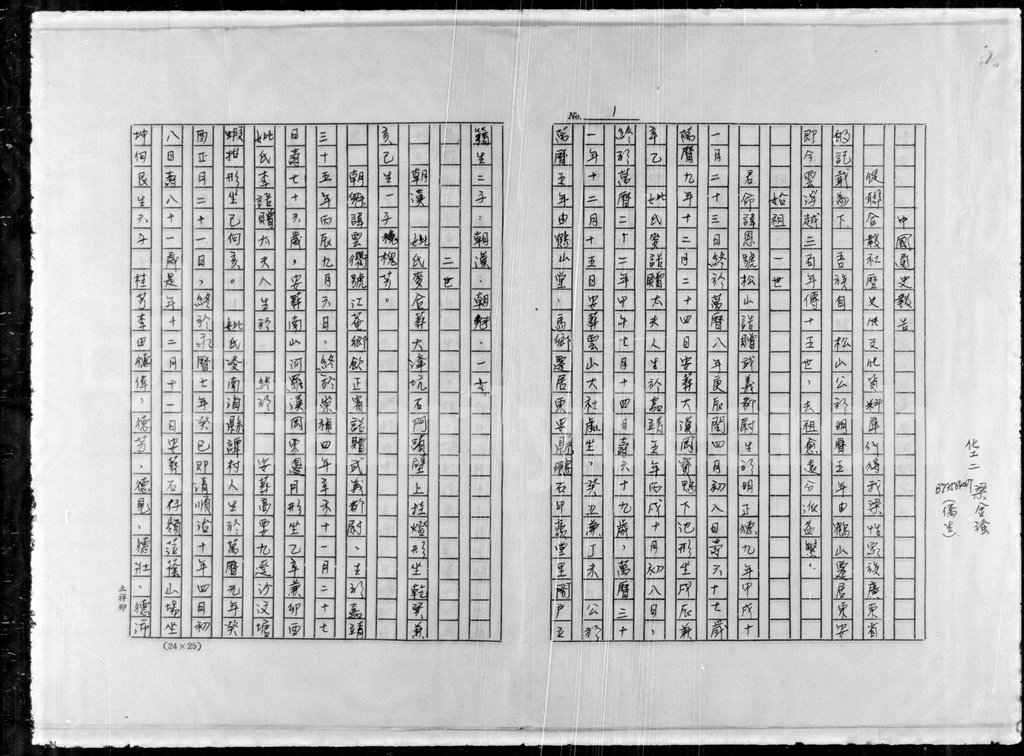 No. 1
化工二 梁金
B7356487
(僑生)
中國通史報告
從聯合報社歷史性文化資料庫所得我梁姓家族廣東省
的記載如下 吾族自 松山公於明曆五年由鶴山遷居東安
即今雲浮越三百年傳十五世,去祖愈遠分派益繁:
始祖 一世
君命諱恩號松山誥贈武義都尉生於明正德九年甲戌十
一月二十三日終於萬曆八年庚辰閏四月初八日壽六十七歲
萬曆九年十二月二十四日安葬大漢岡 鴨下池形坐戌辰兼
辛乙 妣氏 誥贈太夫人生於嘉靖五年丙戌十月初八日,
終於萬曆二十二年甲午七月十四日壽六十九歲,萬曆三十
一年十二月十五日安葬雲山大社處坐,癸丑兼丁未 公於
萬曆五年由鶴山堂,高鄉遷居東安縣鵬石甲 堂里開戶立
籍生二子:朝漢、朝 ,一女
二世
朝漢 妣氏麥合葬大 坑石阿頭壁上挂燈形坐乾巽兼
亥己生一子 槐芳。
朝 諱雲衢號江菴鄉飲正賓誥贈武義都尉,生於嘉靖
三十五年丙辰九月六日,終於崇禎四年辛未十一月二十七
日壽七十六歲,安葬南山河羅漢岡東邊月形坐乙辛兼卯酉
妣氏李誥贈太夫人生於 終於 安葬高要九 沙汶塘
蝦 形坐巳向亥。 妣氏凌南海縣譚村人生於萬曆元年癸
酉正月二十一日,終於永曆七年癸巳即清順治十年四月初
八日壽八十一歲是年十二月十一日安葬石仔嶺 蔭山場坐
坤向艮生六子 桂芳李由德偉,德芳,德見,德壯,德沛
(24×25)
立祥印